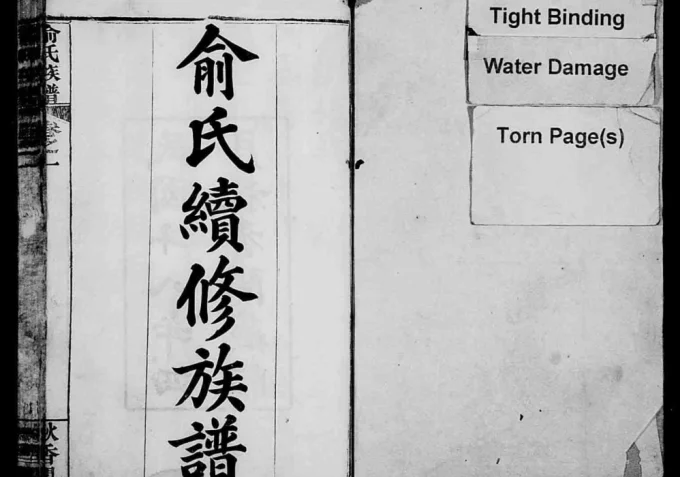 Tight Binding
Water Damage
Torn Page(s)
俞氏續修族譜
俞氏族譜
卷之一